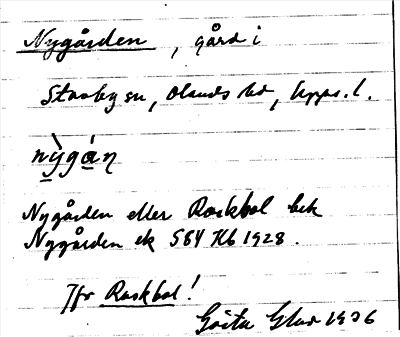 Nygården, gård i
Stavby sn, Olands hd, Upps. l.
nỳgán
Nygården eller Raskbol bek
Nygården ek 584 Hb 1928.
Jfr Raskbol!
Gösta 1936